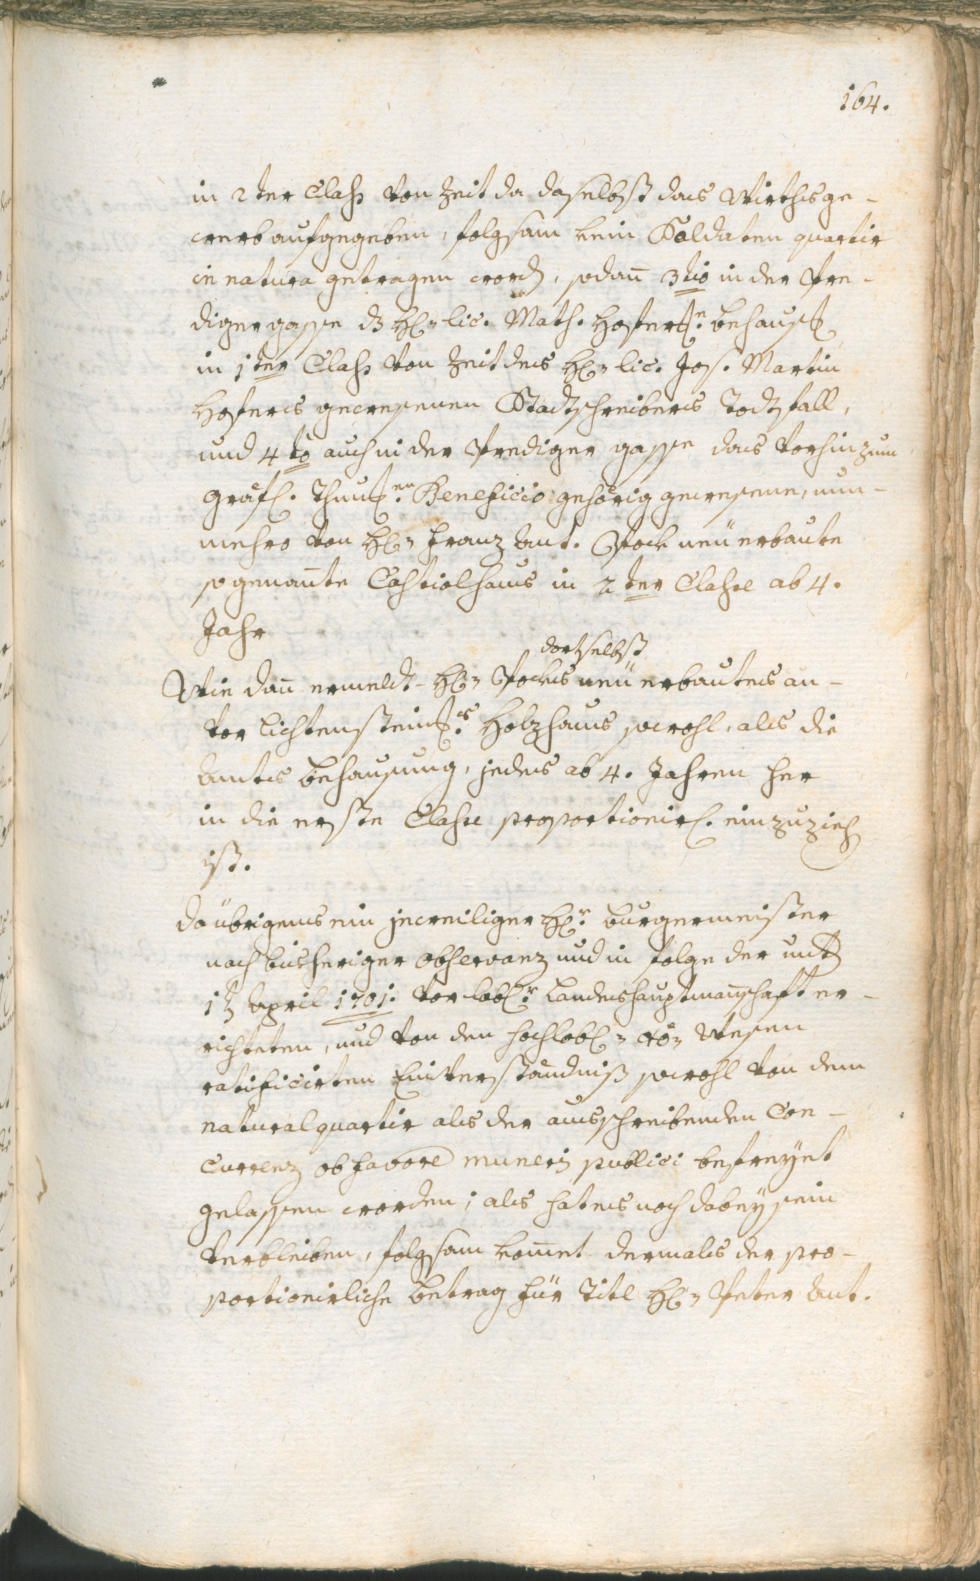 164.
in 2ter Class von Zeit da daselbst das Wirthsge-
werb aufgegeben, folgsam kein Soldaten quartir
in natura getragen word, sodan̄ 3tio in der Pre-
digergasse dz H: lic. Math. Hofer behaus
in 1ter Class von Zeit des H: lic. Jos. Martin
Hofers gewesenen Stadtschreibers Todtfall,
und 4to auch in der Prediger gasse das vorhin zum
gräfl. Thun Beneficio gehörig gewesene, nun-
mehro von H: Franz Ant. Pock neü erbaute
so genan̄te Castiolhaus in 2ter Classe ab 4.
Jahr
dortselbst
Wie dan̄ ermeldt- H: Pockes neü erbautes an-
vor Lichtenstein Holzhaus sowohl, als die
Amts behausung, jedes ab 4. Jahren her
in die erste Classe proportionirl. einzuzieh
ist.
da übrigens ein jeweiliger H: burgermeister
nach bisheriger observanz und in folge der unt
13 April 1701. vor löbl: Landeshauptman̄schaft er-
richteten, und von den hochlöbl: oö: Wesen
ratificirten Einverständniß sowohl von dem
natural quartir als der ausschreibenden Con-
Currenz ob favore muneris publici befreÿet
gelassen worden; als hat es noch dabeÿ sein
verbleiben, folgsam kom̄et dermals der pro-
portionirliche betrag für Titl H: Peter Ant.